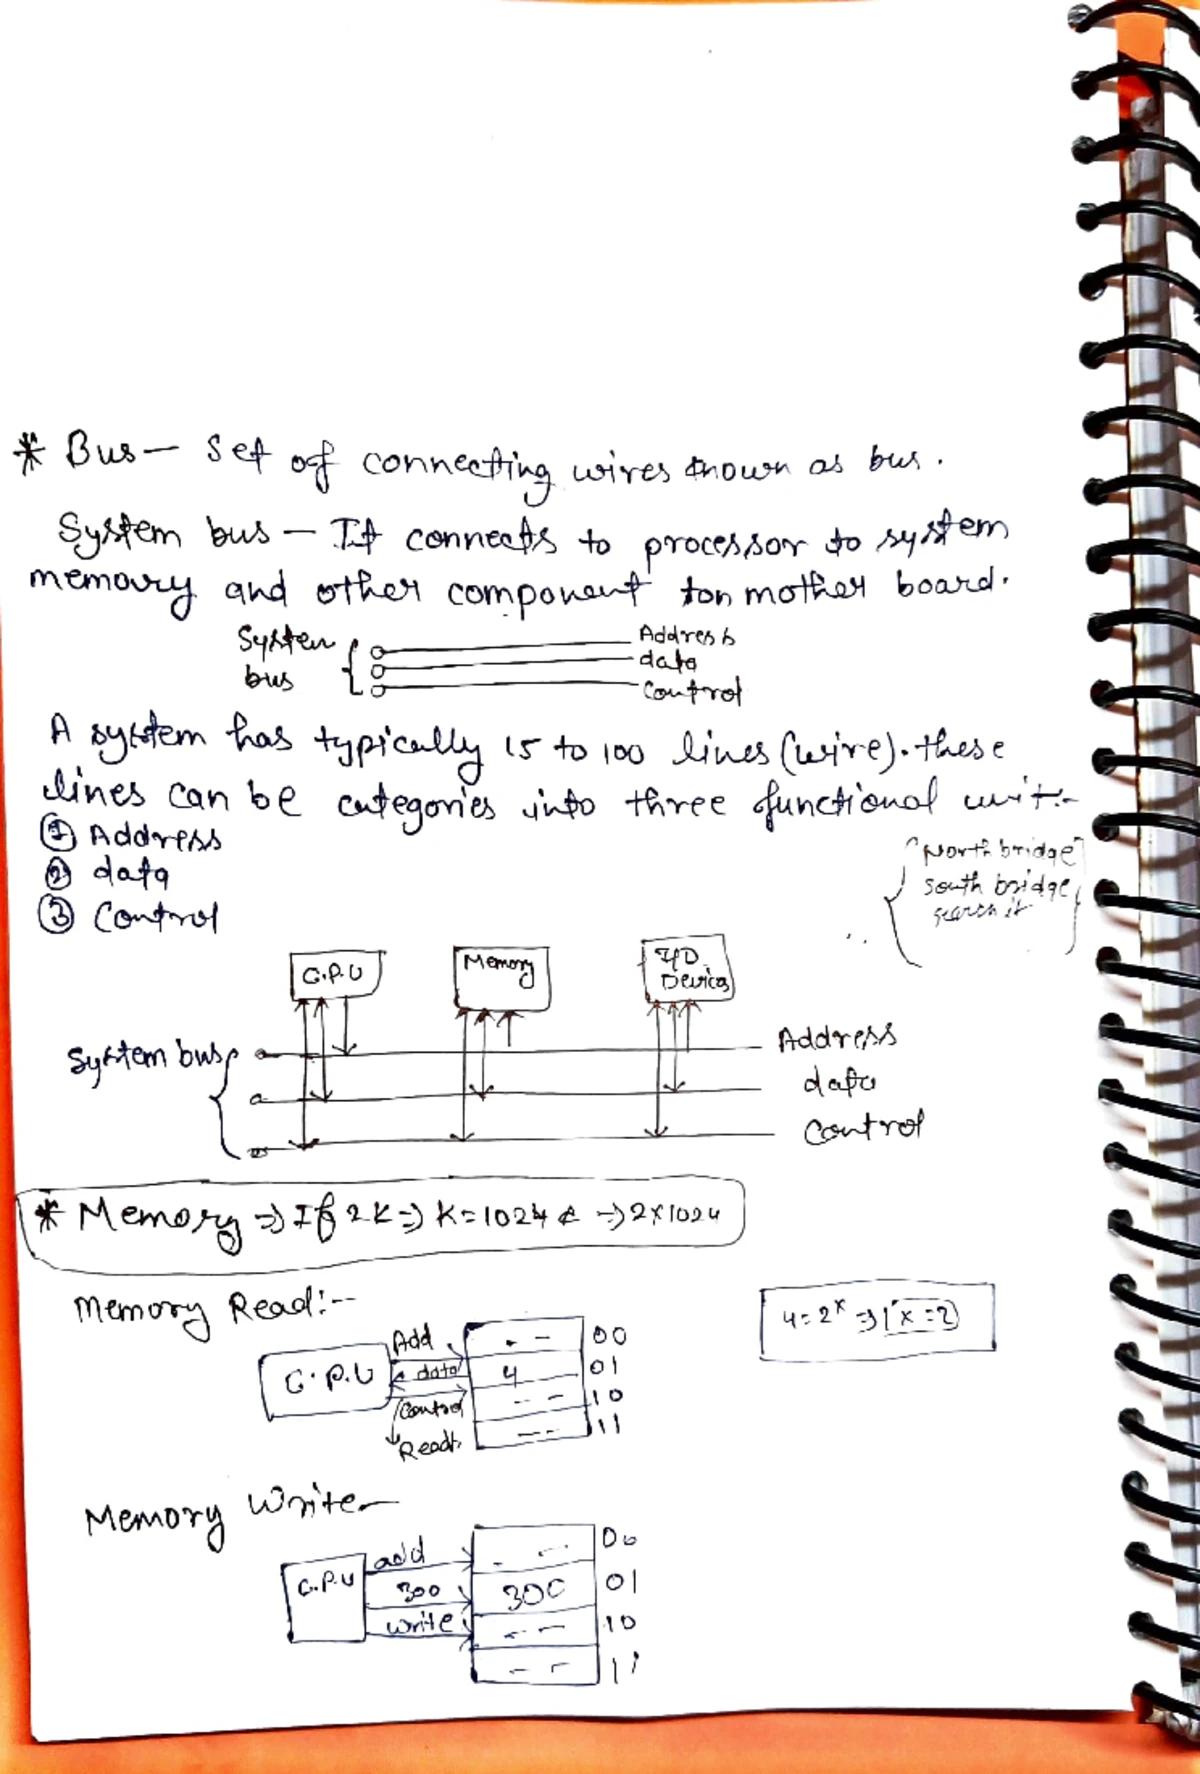 * Bus — Set of connecting wires known as bus.
System bus — It connects to processor to system
memory and other component on mother board.
System
bus
Address
data
Control
A system has typically 15 to 100 lines (wire). these
lines can be categories into three functional unit:-
① Address
② data
③ Control
North bridge
south bridge
search it
C.P.U
Memory
I/O
Devices
System bus
Address
data
Control
* Memory ⇒ If 2K ⇒ K = 1024 ⇒ 2×1024
Memory Read:-
4 = 2^x ⇒ x = 2
C.P.U
Add
data
Control
Read
- -
4
- -
- -
00
01
10
11
Memory Write —
C.P.U
add
300
write
- -
300
- -
- -
00
01
10
11